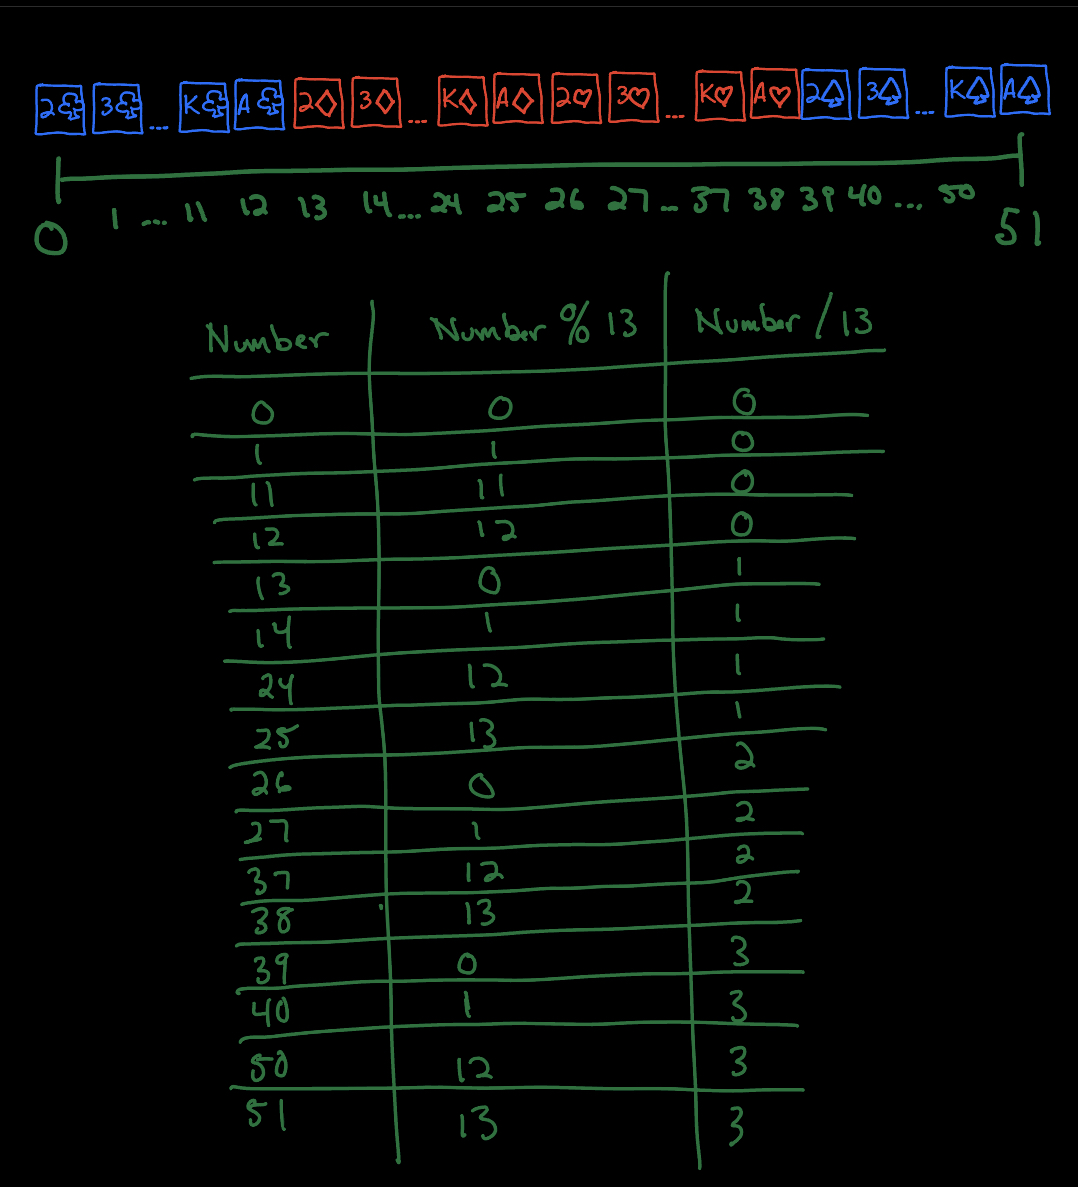 2♧ 3♧ ... K♧ A♧ 2♢ 3♢ ... K♢ A♢ 2♡ 3♡ ... K♡ A♡ 2♤ 3♤ ... K♤ A♤
0 1 ... 11 12 13 14 ... 24 25 26 27 ... 37 38 39 40 ... 50 51
Number Number % 13 Number / 13
0 0 0
1 1 0
11 11 0
12 12 0
13 0 1
14 1 1
24 12 1
25 13 1
26 0 2
27 1 2
37 12 2
38 13 2
39 0 3
40 1 3
50 12 3
51 13 3